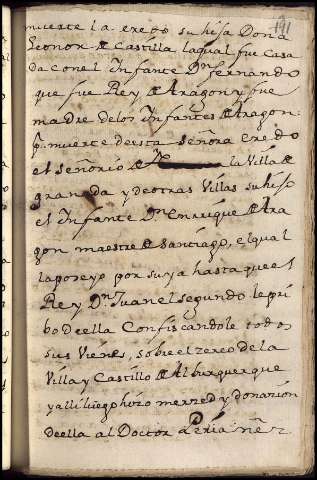 191
muerte la eredo su hija Dona
Leonor de Castilla la qual fue Casa
da con el Infante Dn fernando
que fue Rey de Aragon y fue
madre delos Infantes de Aragon.
Pr muerte de esta señora eredo
el señorio de la Villa de
granada y de otras Villas su hijo
el Infante Dn Enrrique de Ara
gon maestre de Santiago, el qual
la poseyo por suya hasta que el
Rey Dn Juan el segundo le pri
bo de ella Confiscandole todos
sus Vienes, sobre el zerco de la
Villa y Castillo de Alburquerque
y alli luego hizo merzed y donazion
de ella al Doctor Periañez